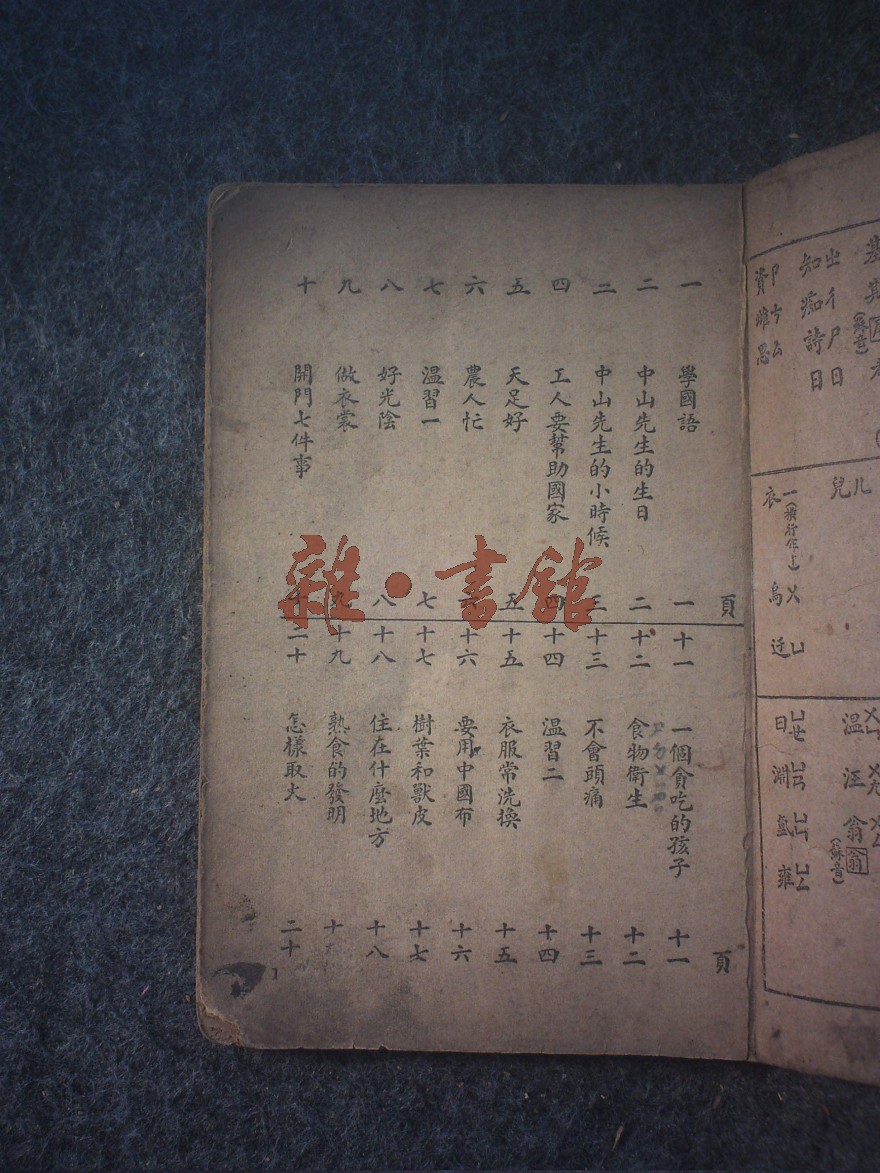 頁
一 學國語 一
二 中山先生的生日 二
三 中山先生的小時候 三
四 工人要幫助國家 四
五 天足好 五
六 農人忙
七 溫習一 七
八 好光陰 八
九 做衣裳 九
十 開門七件事 十
頁
十一 一個貪吃的孩子 十一
十二 食物衛生 十二
十三 不會頭痛 十三
十四 溫習二 十四
十五 衣服常洗換 十五
十六 要用中國布 十六
十七 樹葉和獸皮 十七
十八 住在什麼地方 十八
十九 熟食的發明 十
二十 怎樣取火 二十
1
雜·書館
ㄓ ㄔ ㄕ ㄖ
知 痴 詩 日
ㄗ ㄘ ㄙ
資 雌 思
(蘇音)
ㄦ
兒
一(橫行作丨) ㄨ ㄩ
衣 烏 迂
ㄨㄣ ㄨㄤ ㄨㄥ
溫 汪 翁 翁
(蘇音)
ㄩㄝ ㄩㄢ ㄩㄣ ㄩㄥ
曰 淵 氳 雍